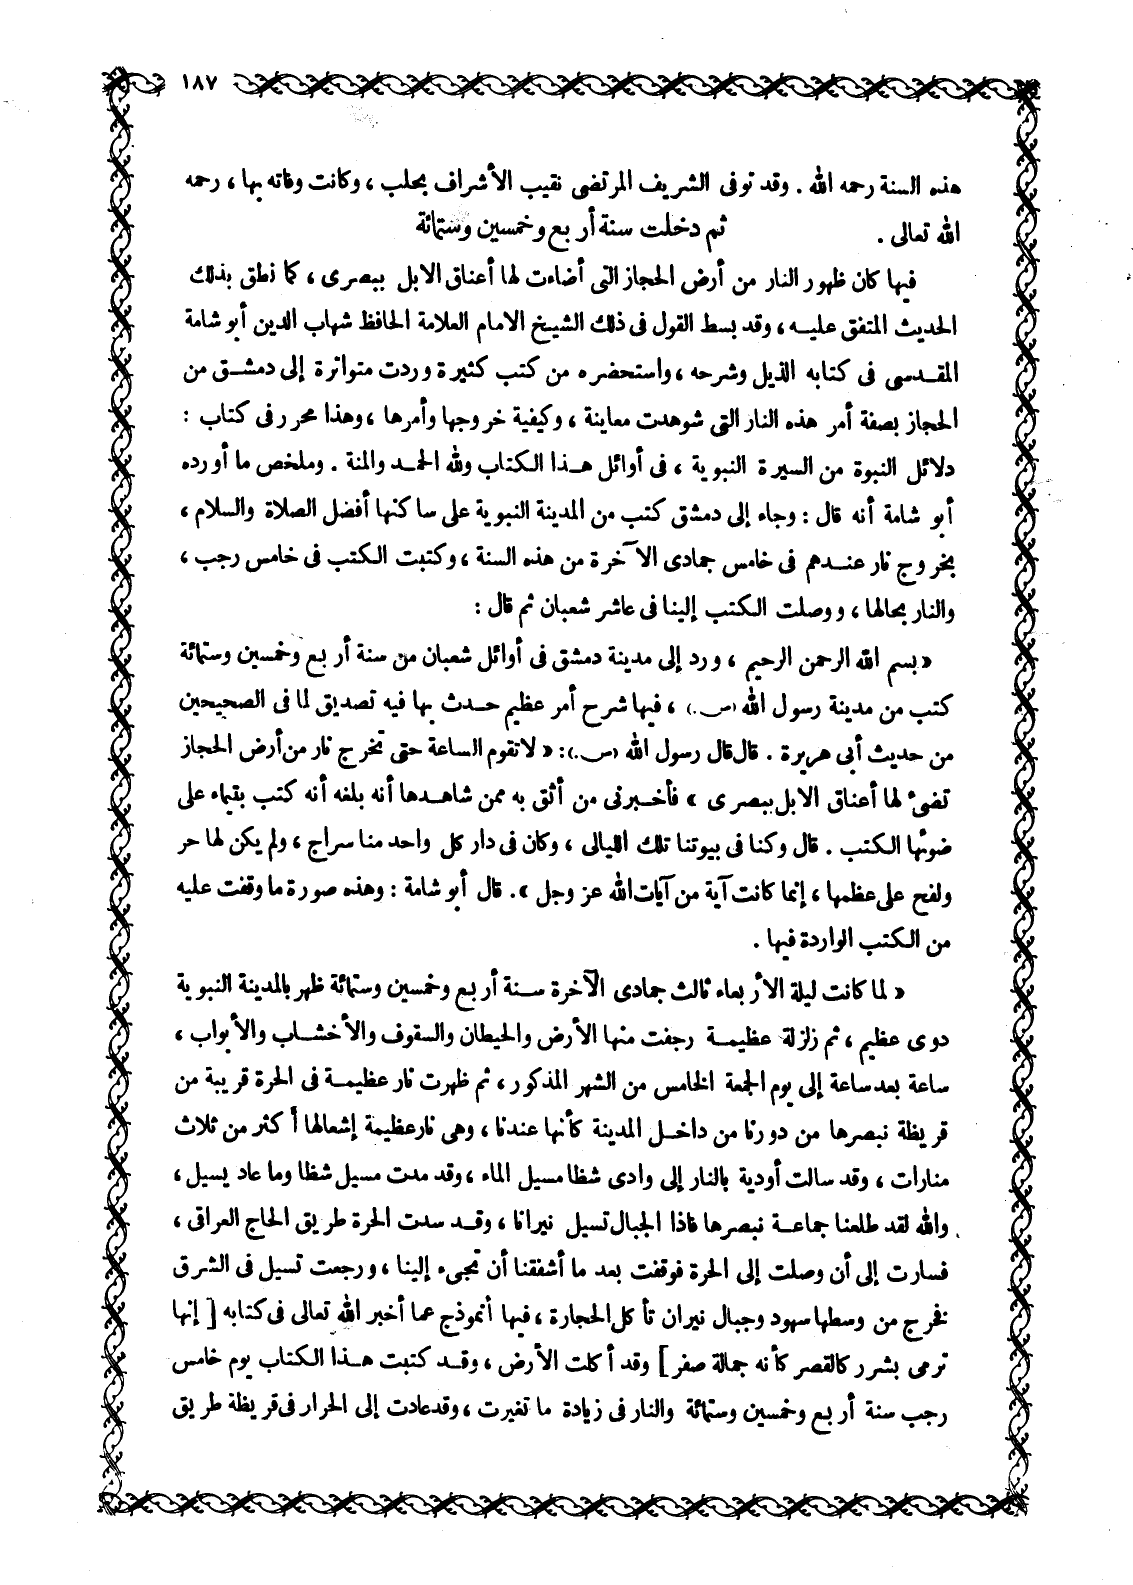 ١٨٧
هذه السنة رحمه الله . وقد توفى الشريف المرتضى نقيب الأشراف بحلب ، وكانت وفاته بها ، رحمه
الله تعالى .
ثم دخلت سنة أربع وخمسين وستمائة
فيها كان ظهور النار من أرض الحجاز التى أضاءت لها أعناق الابل ببصرى ، كما نطق بذلك
الحديث المتفق عليه ، وقد بسط القول فى ذلك الشيخ الامام العلامة الحافظ شهاب الدين أبو شامة
المقدسى فى كتابه الذيل وشرحه ، واستحضره من كتب كثيرة وردت متواترة إلى دمشق من
الحجاز بصفة أمر هذه النار التى شوهدت معاينة ، وكيفية خروجها وأمرها ، وهذا محرر فى كتاب :
دلائل النبوة من السيرة النبوية ، فى أوائل هذا الكتاب ولله الحمد والمنة . وملخص ما أورده
أبو شامة أنه قال : وجاء إلى دمشق كتب من المدينة النبوية على ساكنها أفضل الصلاة والسلام ،
بخروج نار عندهم فى خامس جمادى الآخرة من هذه السنة ، وكتبت الكتب فى خامس رجب ،
والنار بحالها ، ووصلت الكتب إلينا فى عاشر شعبان ثم قال :
« بسم الله الرحمن الرحيم ، ورد إلى مدينة دمشق فى أوائل شعبان من سنة أربع وخمسين وستمائة
كتب من مدينة رسول الله (ص.) ، فيها شرح أمر عظيم حدث بها فيه تصديق لما فى الصحيحين
من حديث أبى هريرة . قال قال رسول الله (ص.): « لا تقوم الساعة حتى تخرج نار من أرض الحجاز
تضىء لها أعناق الابل ببصرى » فأخبرنى من أثق به ممن شاهدها أنه بلغه أنه كتب بتيماء على
ضوئها الكتب . قال وكنا فى بيوتنا تلك الليالى ، وكان فى دار كل واحد منا سراج ، ولم يكن لها حر
ولفح على عظمها ، إنما كانت آية من آيات الله عز وجل ». قال أبو شامة : وهذه صورة ما وقفت عليه
من الكتب الواردة فيها .
« لما كانت ليلة الأربعاء ثالث جمادى الآخرة سنة أربع وخمسين وستمائة ظهر بالمدينة النبوية
دوى عظيم ، ثم زلزلة عظيمة رجفت منها الأرض والحيطان والسقوف والأخشاب والأبواب ،
ساعة بعد ساعة إلى يوم الجمعة الخامس من الشهر المذكور ، ثم ظهرت نار عظيمة فى الحرة قريبة من
قريظة نبصرها من دورنا من داخل المدينة كأنها عندنا ، وهى نار عظيمة إشعالها أكثر من ثلاث
منارات ، وقد سالت أودية بالنار إلى وادى شظا مسيل الماء ، وقد مدت مسيل شظا وما عاد يسيل ،
والله لقد طلعنا جماعة نبصرها فاذا الجبال تسيل نيرانا ، وقد سدت الحرة طريق الحاج العراقى ،
فسارت إلى أن وصلت إلى الحرة فوقفت بعد ما أشفقنا أن تجىء إلينا ، ورجعت تسيل فى الشرق
فخرج من وسطها سهود وجبال نيران تأكل الحجارة ، فيها أنموذج عما أخبر الله تعالى فى كتابه [ إنها
ترمى بشرر كالقصر كأنه جمالة صفر ] وقد أكلت الأرض ، وقد كتبت هذا الكتاب يوم خامس
رجب سنة أربع وخمسين وستمائة والنار فى زيادة ما تغيرت ، وقد عادت إلى الحرار فى قريظة طريق